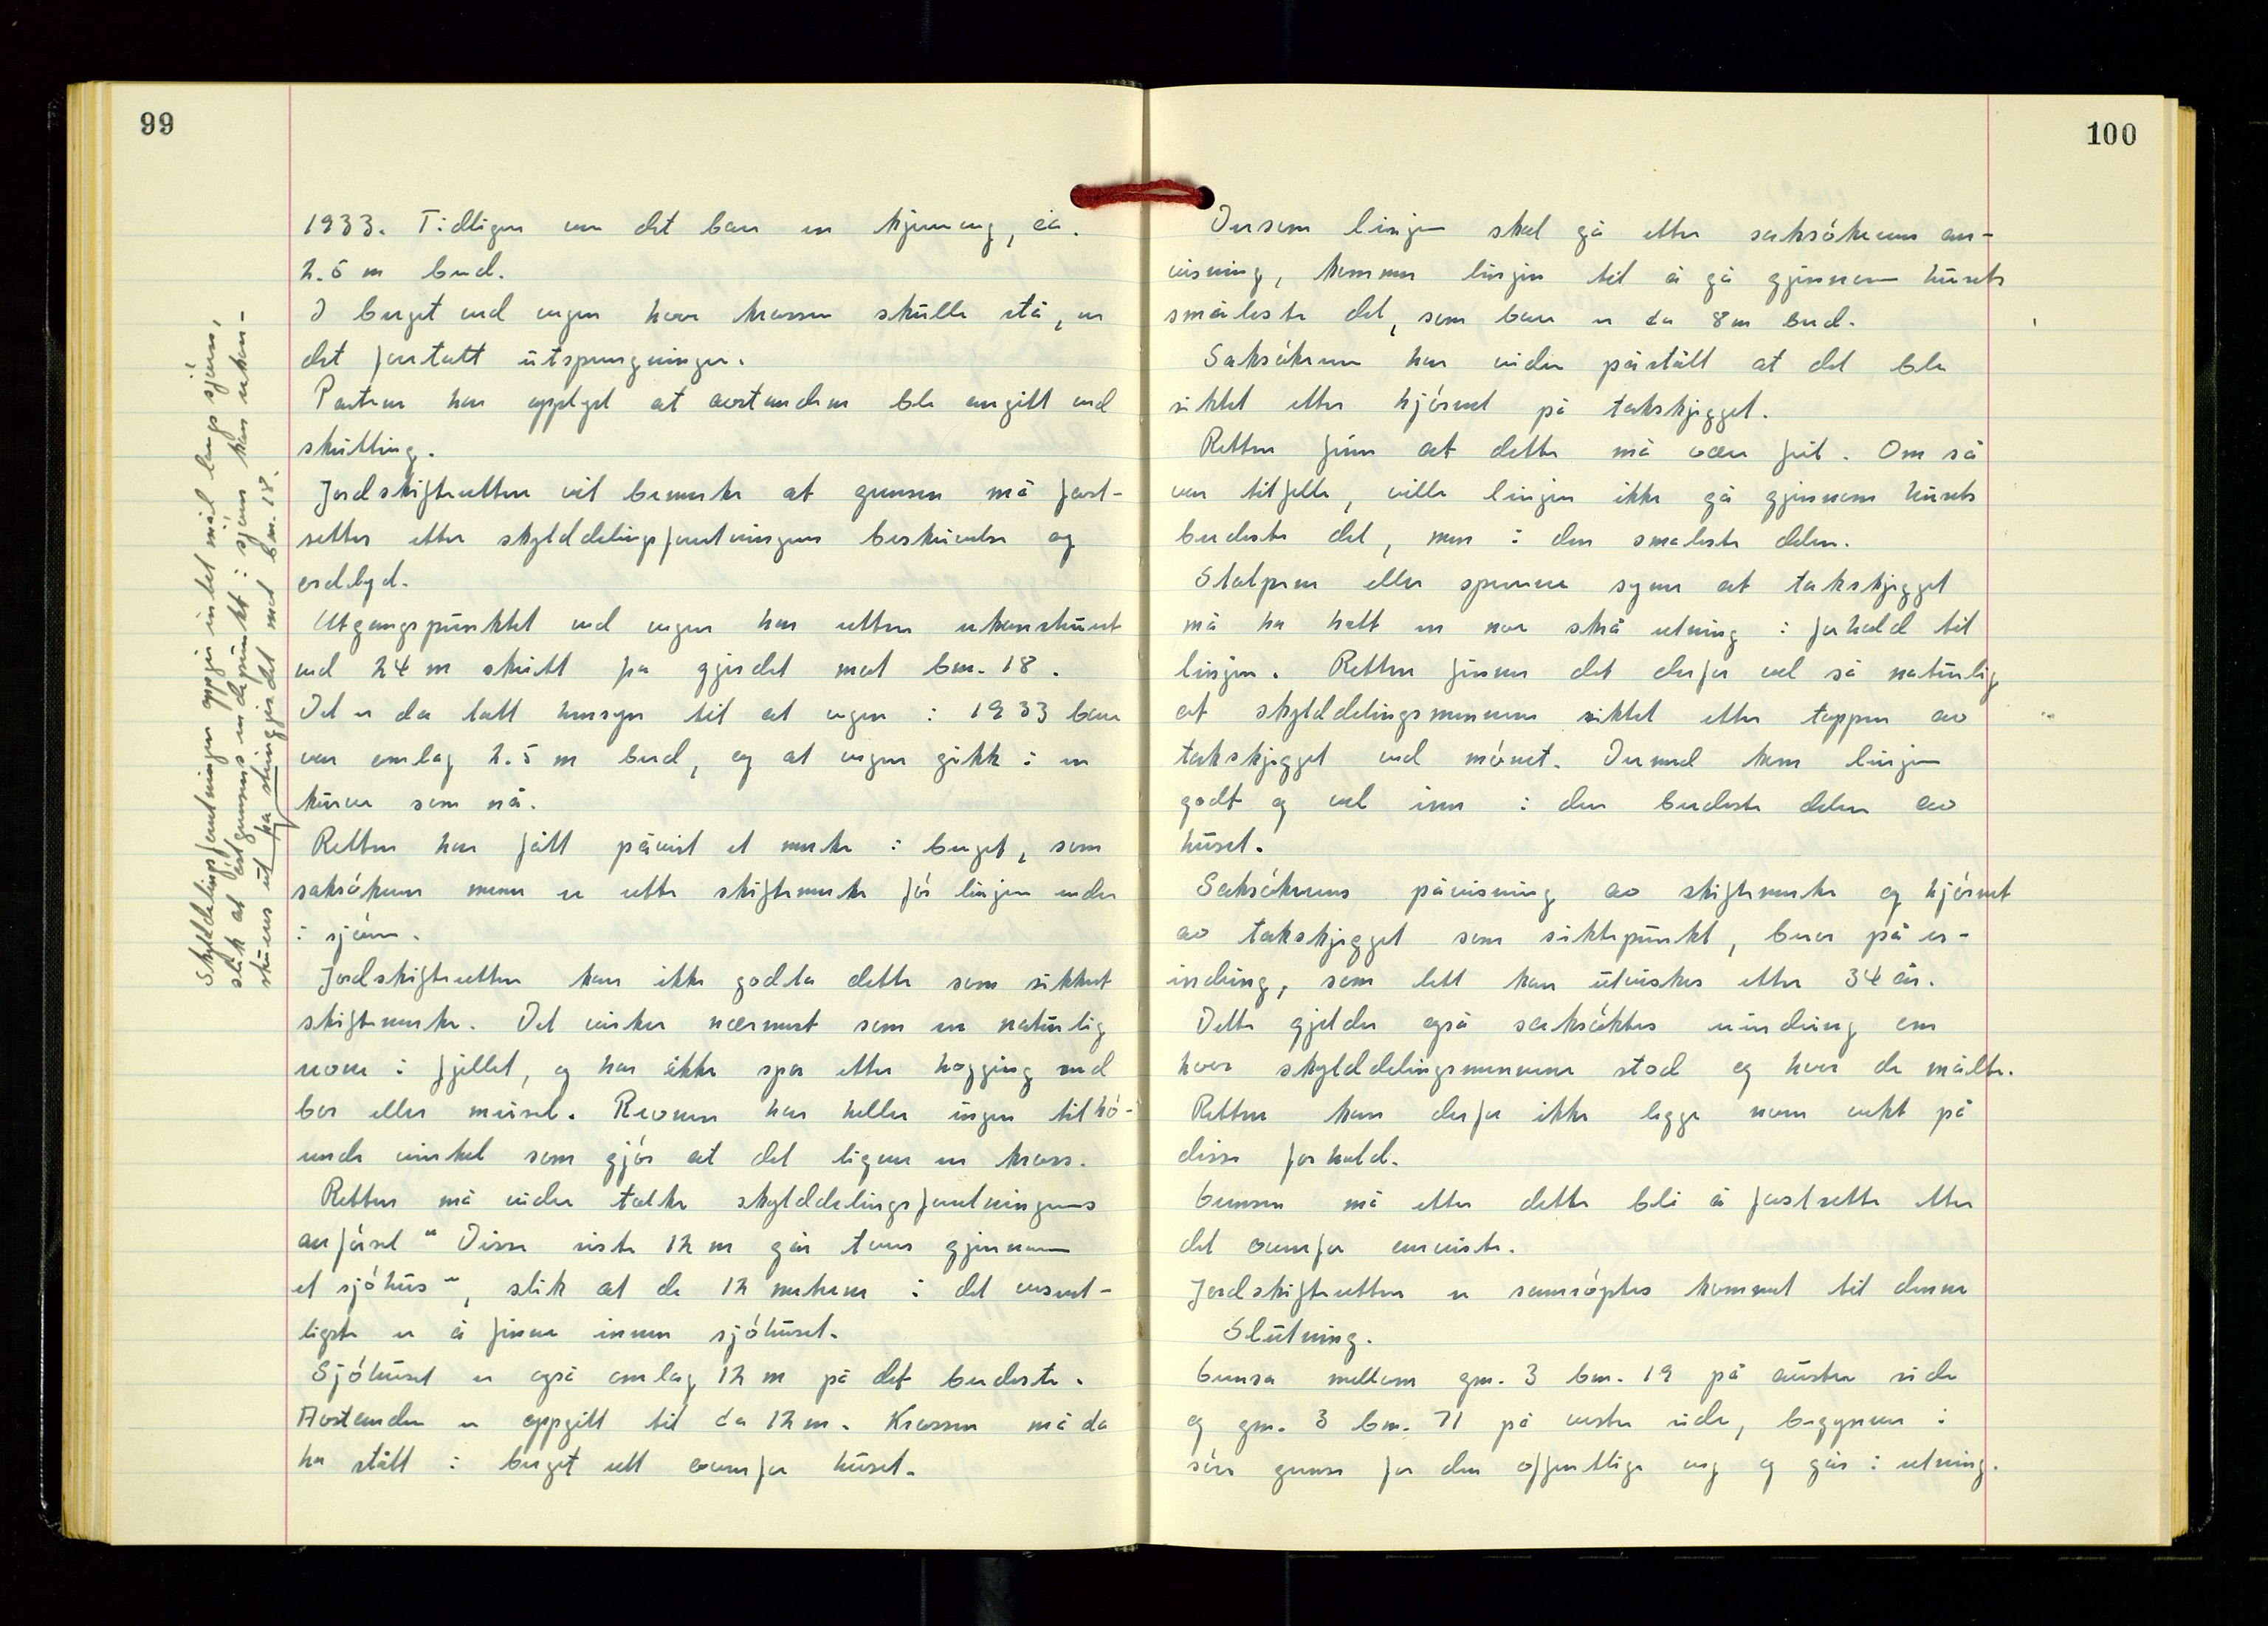 99
1933. Tidligere var det bare en kjerreveg, ca.
2.5 m bred.
I berget ved vegen hvor krossen skulle stå, er
det foretatt utsprengninger.
Partene har opplyst at avstandene ble angitt ved
skritting.
Jordskifteretten vil bemerke at grensen må fast-
settes etter skylddelingsforretningens beskrivelse og
ordlyd.
Utgangspunktet ved vegen har retten rekonstruert
ved 24 m skritt fra gjerdet mot bnr. 18.
Det er da tatt hensyn til at vegen i 1933 bare
var omlag 2.5 m bred, og at vegen gikk i en
kurve som nå.
Retten har fått påvist et merke i berget, som
saksøkeren mener er rette skiftemerke før linjen ender
i sjøen.
Jordskifteretten kan ikke godta dette som sikkert
skiftemerke. Det virker nærmest som en naturlig
revne i fjellet, og har ikke spor etter hogging med
bor eller meisel. Revnen har heller ingen tilhø-
rende vinkel som gjør at det ligner en kross.
Retten må videre tolke skylddelingsforretningens
anførsel " Disse siste 12 m går tvers gjennem
et sjøhus ", slik at de 12 meterne i det vesent-
ligste er å finne innen sjøhuset.
Sjøhuset er også omlag 12 m på det bredeste.
Avstanden er oppgitt til ca 12 m. Krossen må da
ha stått i berget rett ovenfor huset.
Skylddelingsforretningen oppgir intet mål langs sjøen,
slik at østgrensens endepunkt i sjøen kan rekon-
strueres ut fra steingjerdet mot bnr. 18.
100
Dersom linjen skal gå etter saksøkerens an-
visning, kommer linjen til å gå gjennem husets
smaleste del, som bare er ca 8 m bred.
Saksøkeren har videre påstått at det ble
siktet etter hjørnet på takskjegget.
Retten finner at dette må være feil. Om så
var tilfelle, ville linjen ikke gå gjennem husets
bredeste del, men i den smaleste delen.
Stolpene eller sperrene syner at takskjegget
må ha hatt en noe skrå retning i forhold til
linjen. Retten finner det derfor vel så naturlig
at skylddelingsmennene siktet etter toppen av
takskjegget ved mønet. Dermed kom linjen
godt og vel inn i den bredeste delen av
huset.
Saksøkerens påvisning av skiftemerke og hjørnet
av takskjegget som siktepunkt, beror på er-
indring, som lett kan utviskes etter 34 år.
Dette gjelder også saksøktes erindring om
hvor skylddelingsmennene stod og hvor de målte.
Retten kan derfor ikke legge noen vekt på
disse forhold.
Grensen må etter dette bli å fastsette etter
det ovenfor anviste.
Jordskifteretten er samrøystes kommet til denne
Slutning.
Grensa mellom gnr. 3 bnr. 19 på austre side
og gnr. 3 bnr. 71 på vestre side, begynner i
søre grense for den offentlige veg og går i retning.